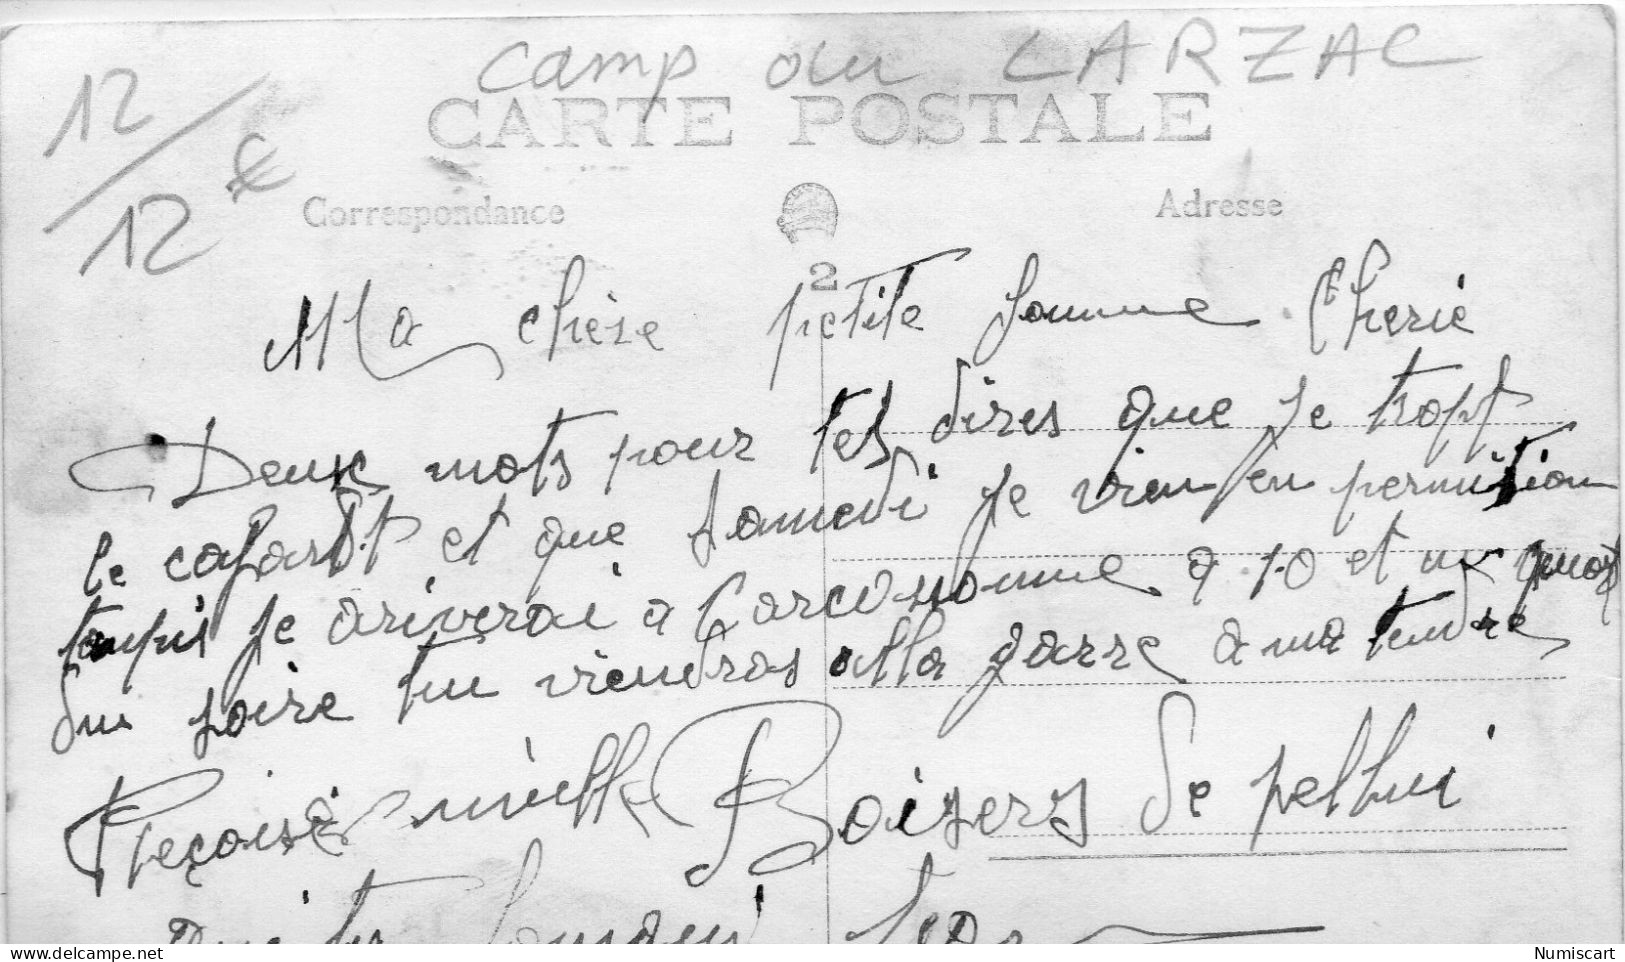 Camp du LARZAC
12/12 €
CARTE POSTALE
Correspondance
Adresse
2
Ma chère petite famme Cherie
Deux mots pour tes dires que je tropt
le cafardt et que samedi je vien en permision
tanpis je ariverai a Carcasonne a 10 et un quart
du soire tu viendras alla garre a ma tendre
Reçoise mille Baisers de pellui
qui tes
Numiscart